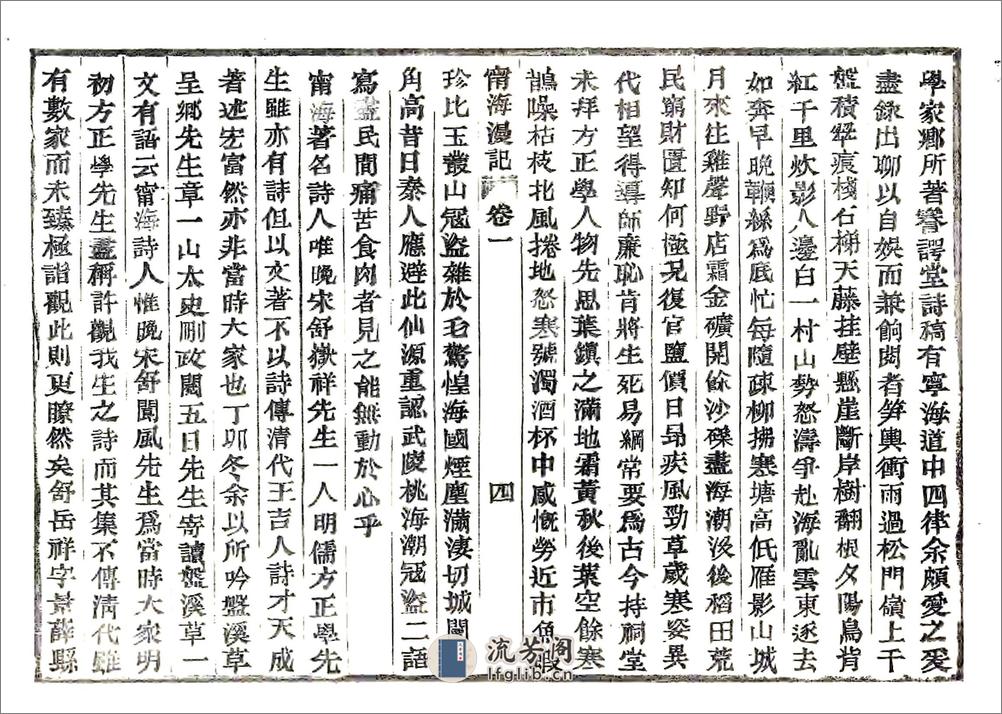 學家鄉所著謇諤堂詩稿有寧海道中四律余頗愛之爰
盡錄出聊以自娛而兼餉閱者筍輿衝雨過松門嶺上千
盤積翠痕棧石梯天藤挂壁懸崖斷岸樹翻根夕陽鳥背
紅千里炊影人邊白一村山勢怒濤爭赴海亂雲東逐去
如奔早晚鞭絲爲底忙每隨疎柳拂寒塘高低雁影山城
月來往雞聲野店霜金礦開餘沙磧盡海潮沒後稻田荒
民窮財匱知何極況復官鹽價日昂疾風勁草歲寒姿異
代相望得導師廉恥肯將生死易綱常要爲古今持祠堂
未拜方正學人物先思葉鎮之滿地霜黃秋後葉空餘寒
鵲噪枯枝北風捲地怒寒號濁酒杯中感慨勞近市魚蝦
甯海漫記 卷一 四
珍比玉叢山冦盜雜於毛驚惶海國煙塵滿淒切城闉
角高昔日秦人應避此仙源重認武陵桃海潮冦盜二語
寫盡民間痛苦食肉者見之能無動於心乎
甯海著名詩人唯晚宋舒嶽祥先生一人明儒方正學先
生雖亦有詩但以文著不以詩傳清代王吉人詩才天成
著述宏富然亦非當時大家也丁卯冬余以所吟盤溪草
呈鄉先生章一山太史刪政閱五日先生寄讀盤溪草一
文有語云甯海詩人惟晚宋舒閬風先生爲當時大家明
初方正學先生盡稱許觀我生之詩而其集不傳清代雖
有數家而未臻極詣觀此則更瞭然矣舒岳祥字景薛縣
流芳阁
lfglib.cn